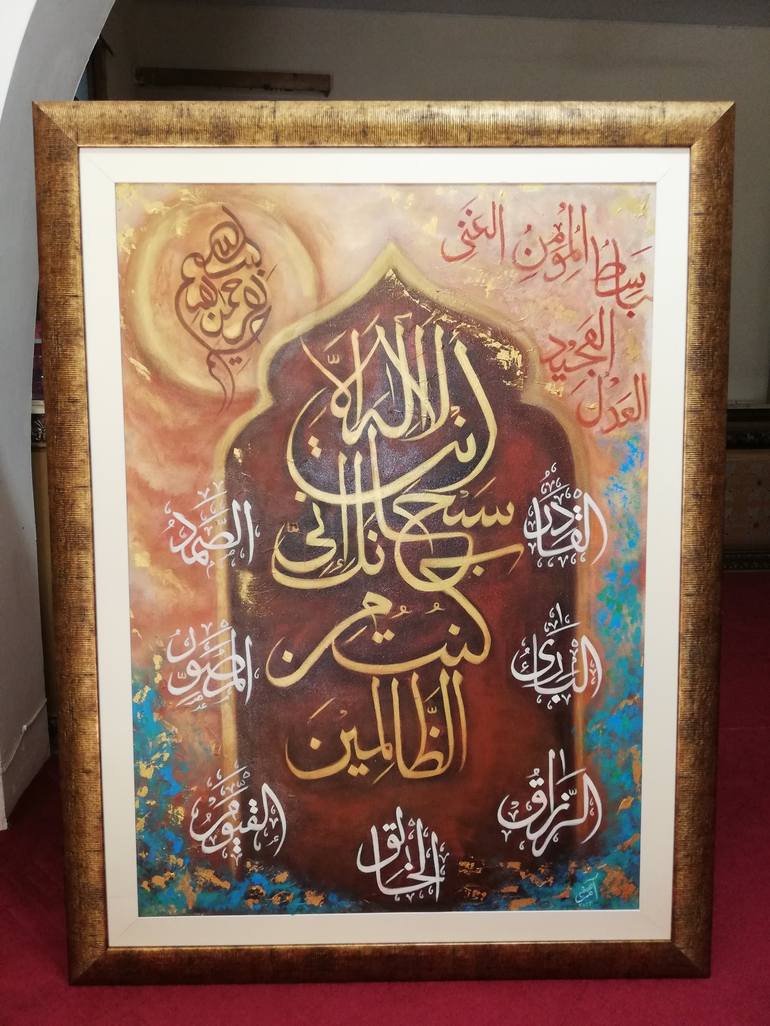 بسم الله الرحمن الرحيم
باسط المؤمن الغنى
المجيد
العدل
لا اله الا
انت
سبحا
نك انى
كنت من
الظالمين
القادر
الصمد
البارئ
المصور
الرزاق
القيوم
الخالق